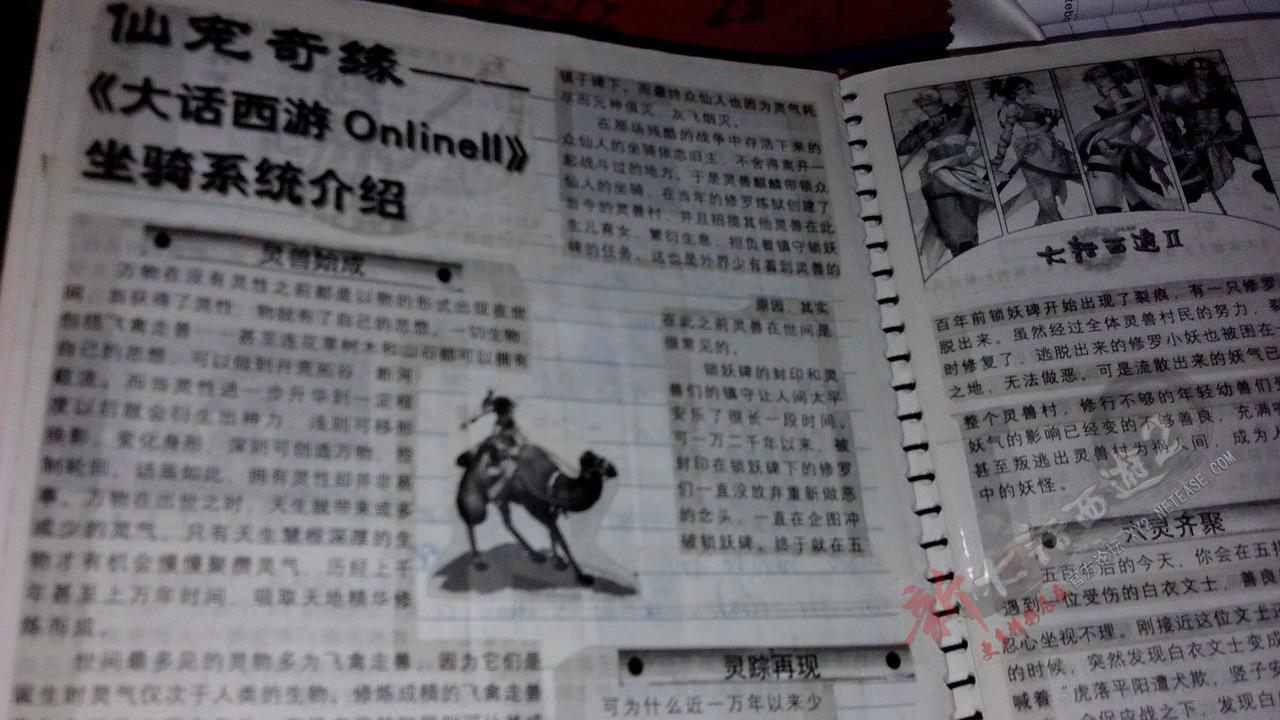 仙宠奇缘——
《大话西游 OnlineII》
坐骑系统介绍
灵兽始成
万物在没有灵性之前都是以物的形式出现在世
间，当获得了灵性，物就有了自己的思想。一切生物，
包括飞禽走兽……甚至连花草树木和山石都可以拥有
自己的思想，可以做到开荒拓谷，断河
截流。而当灵性进一步升华到一定程
度以后就会衍生出神力，浅则可移形
换影，变化身形，深则可创造万物，控
制轮回。话虽如此，拥有灵性却并非易
事。万物在出世之时，天生就带来或多
或少的灵气，只有天生慧根深厚的生
物才有机会慢慢聚攒灵气，历经上千
年甚至上万年时间，吸取天地精华修
炼而成。
世间最多见的灵物多为飞禽走兽，因为它们是
诞生时灵气仅次于人类的生物。修炼成精的飞禽走兽
镇于碑下。而最终众仙人也因为灵气耗
尽而元神俱灭，灰飞烟灭。
在那场残酷的战争中存活下来的
众仙人的坐骑依恋旧主，不舍得离开一
起战斗过的地方。于是灵兽麒麟带领众
仙人的坐骑，在当年的修罗炼狱创建了
当今的灵兽村，并且招揽其他灵兽在此
生儿育女、繁衍生息，担负着镇守锁妖
碑的任务。这也是外界少有看到灵兽的
原因，其实
在此之前灵兽在世间是
很常见的。
锁妖碑的封印和灵
兽们的镇守让人间太平
安乐了很长一段时间，
可一万二千年以来，被
封印在锁妖碑下的修罗
们一直没放弃重新做恶
的念头，一直在企图冲
破锁妖碑。终于就在五
灵踪再现
可为什么近一万年以来少
大话西游II
百年前锁妖碑开始出现了裂痕，有一只修罗
脱出来。虽然经过全体灵兽村民的努力，裂
时修复了，逃脱出来的修罗小妖也被困在
之地，无法做恶。可是流散出来的妖气已
整个灵兽村，修行不够的年轻幼兽们
妖气的影响已经变的不够善良，充满
甚至叛逃出灵兽村为祸人间，成为人
中的妖怪。
六灵齐聚
五百年后的今天，你会在五指
遇到一位受伤的白衣文士，善良
忍心坐视不理。刚接近这位文士
的时候，突然发现白衣文士变成
喊着“虎落平阳遭犬欺，竖子安
应战之下，发现白
新大话西游2
官方论坛 XY2.NETEASE.COM